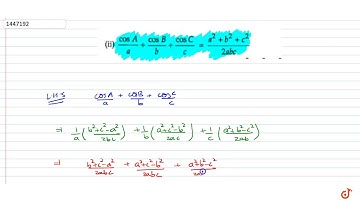 1447192
(ii) cos A/a + cos B/b + cos C/c = a² + b² + c²/2abc
LHS cosA/a + cosB/b + cosC/c
⇒ 1/a (b²+c²-a²/2bc) + 1/b (a²+c²-b²/2ac) + 1/c (a²+b²-c²/2ab)
⇒ b²+c²-a²/2abc + a²+c²-b²/2abc + a²+b²-c²/2a